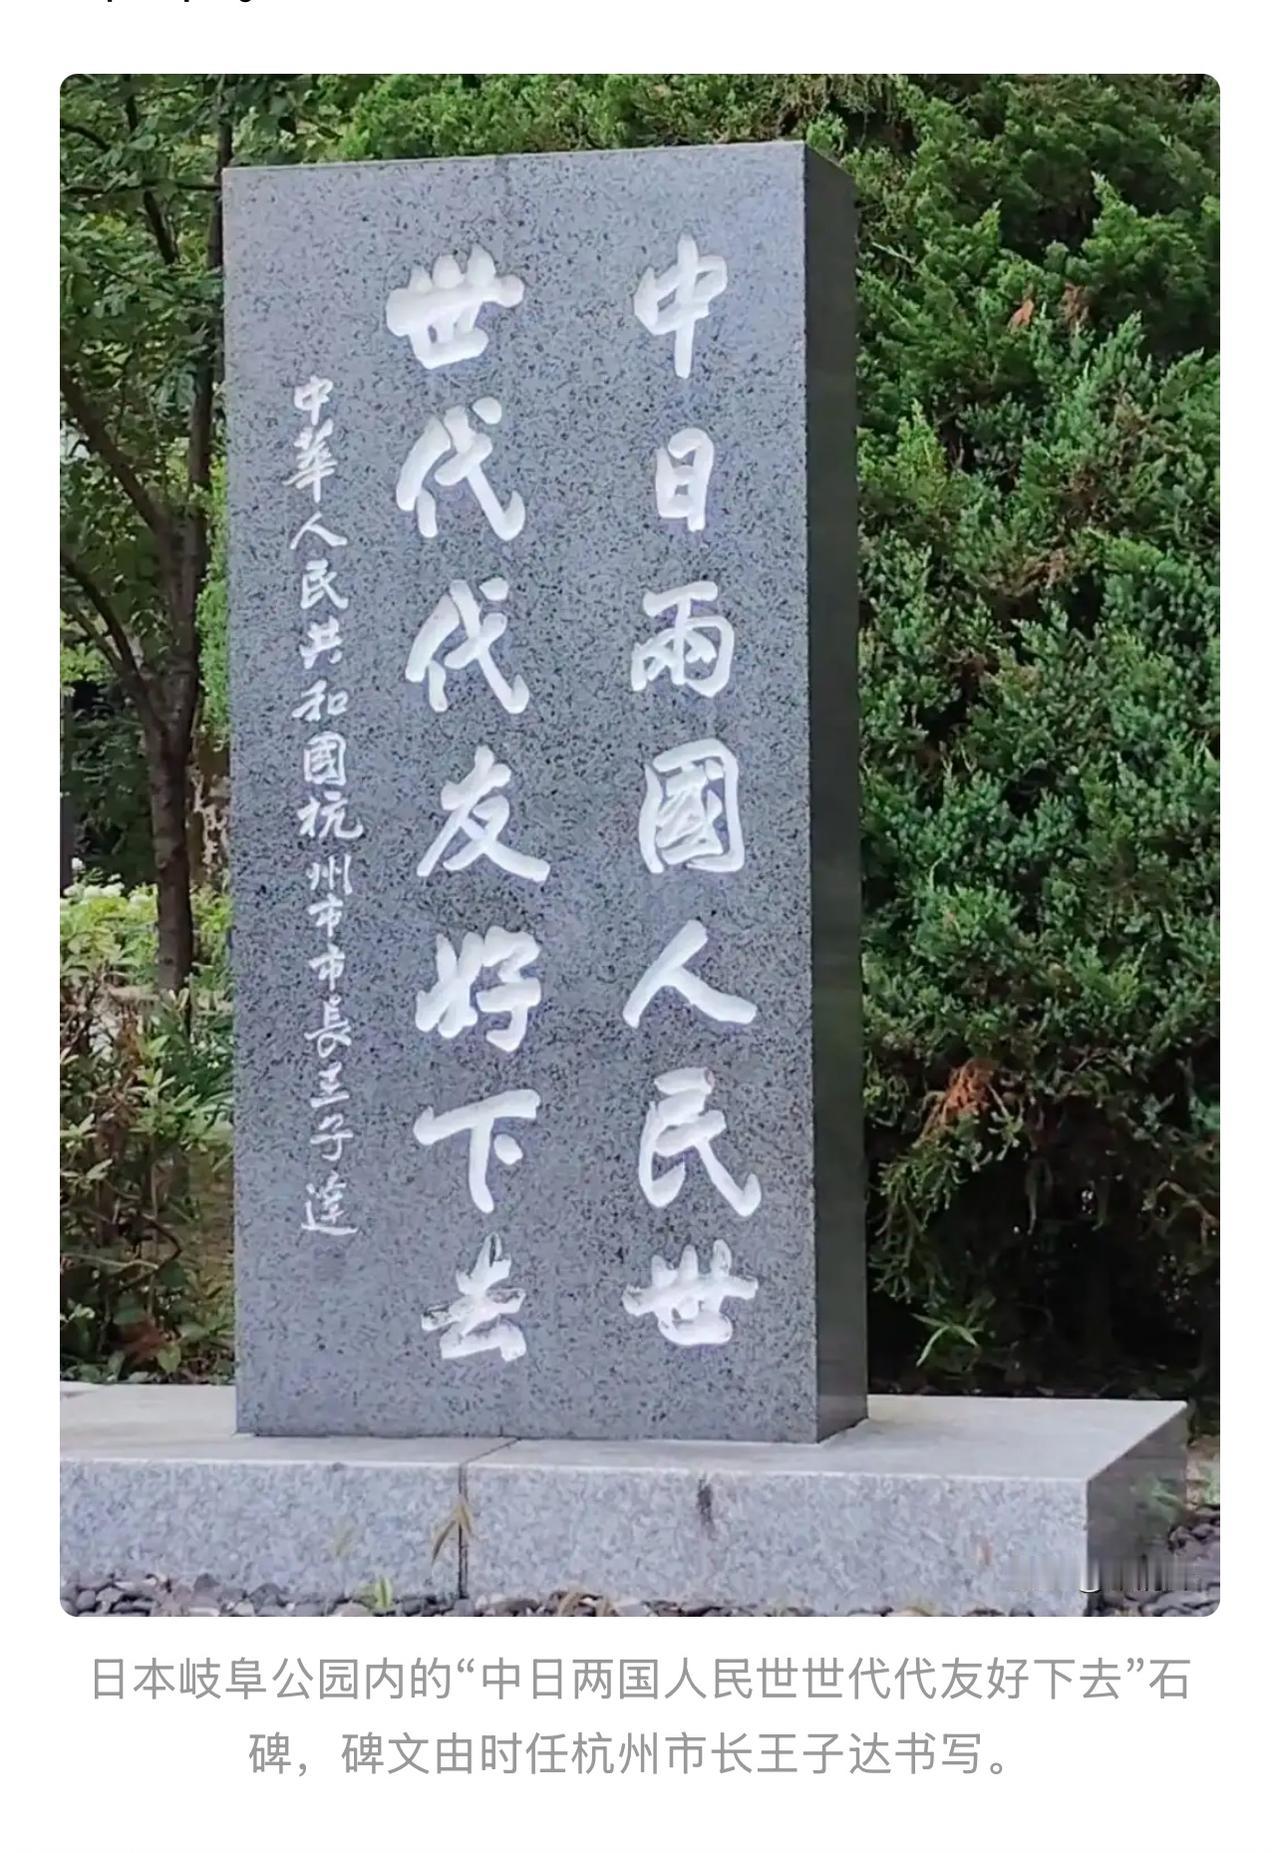 中日兩國人民世
世代代友好下去
中華人民共和國杭州市市長王子達
日本岐阜公园内的“中日两国人民世世代代友好下去”石
碑，碑文由时任杭州市长王子达书写。